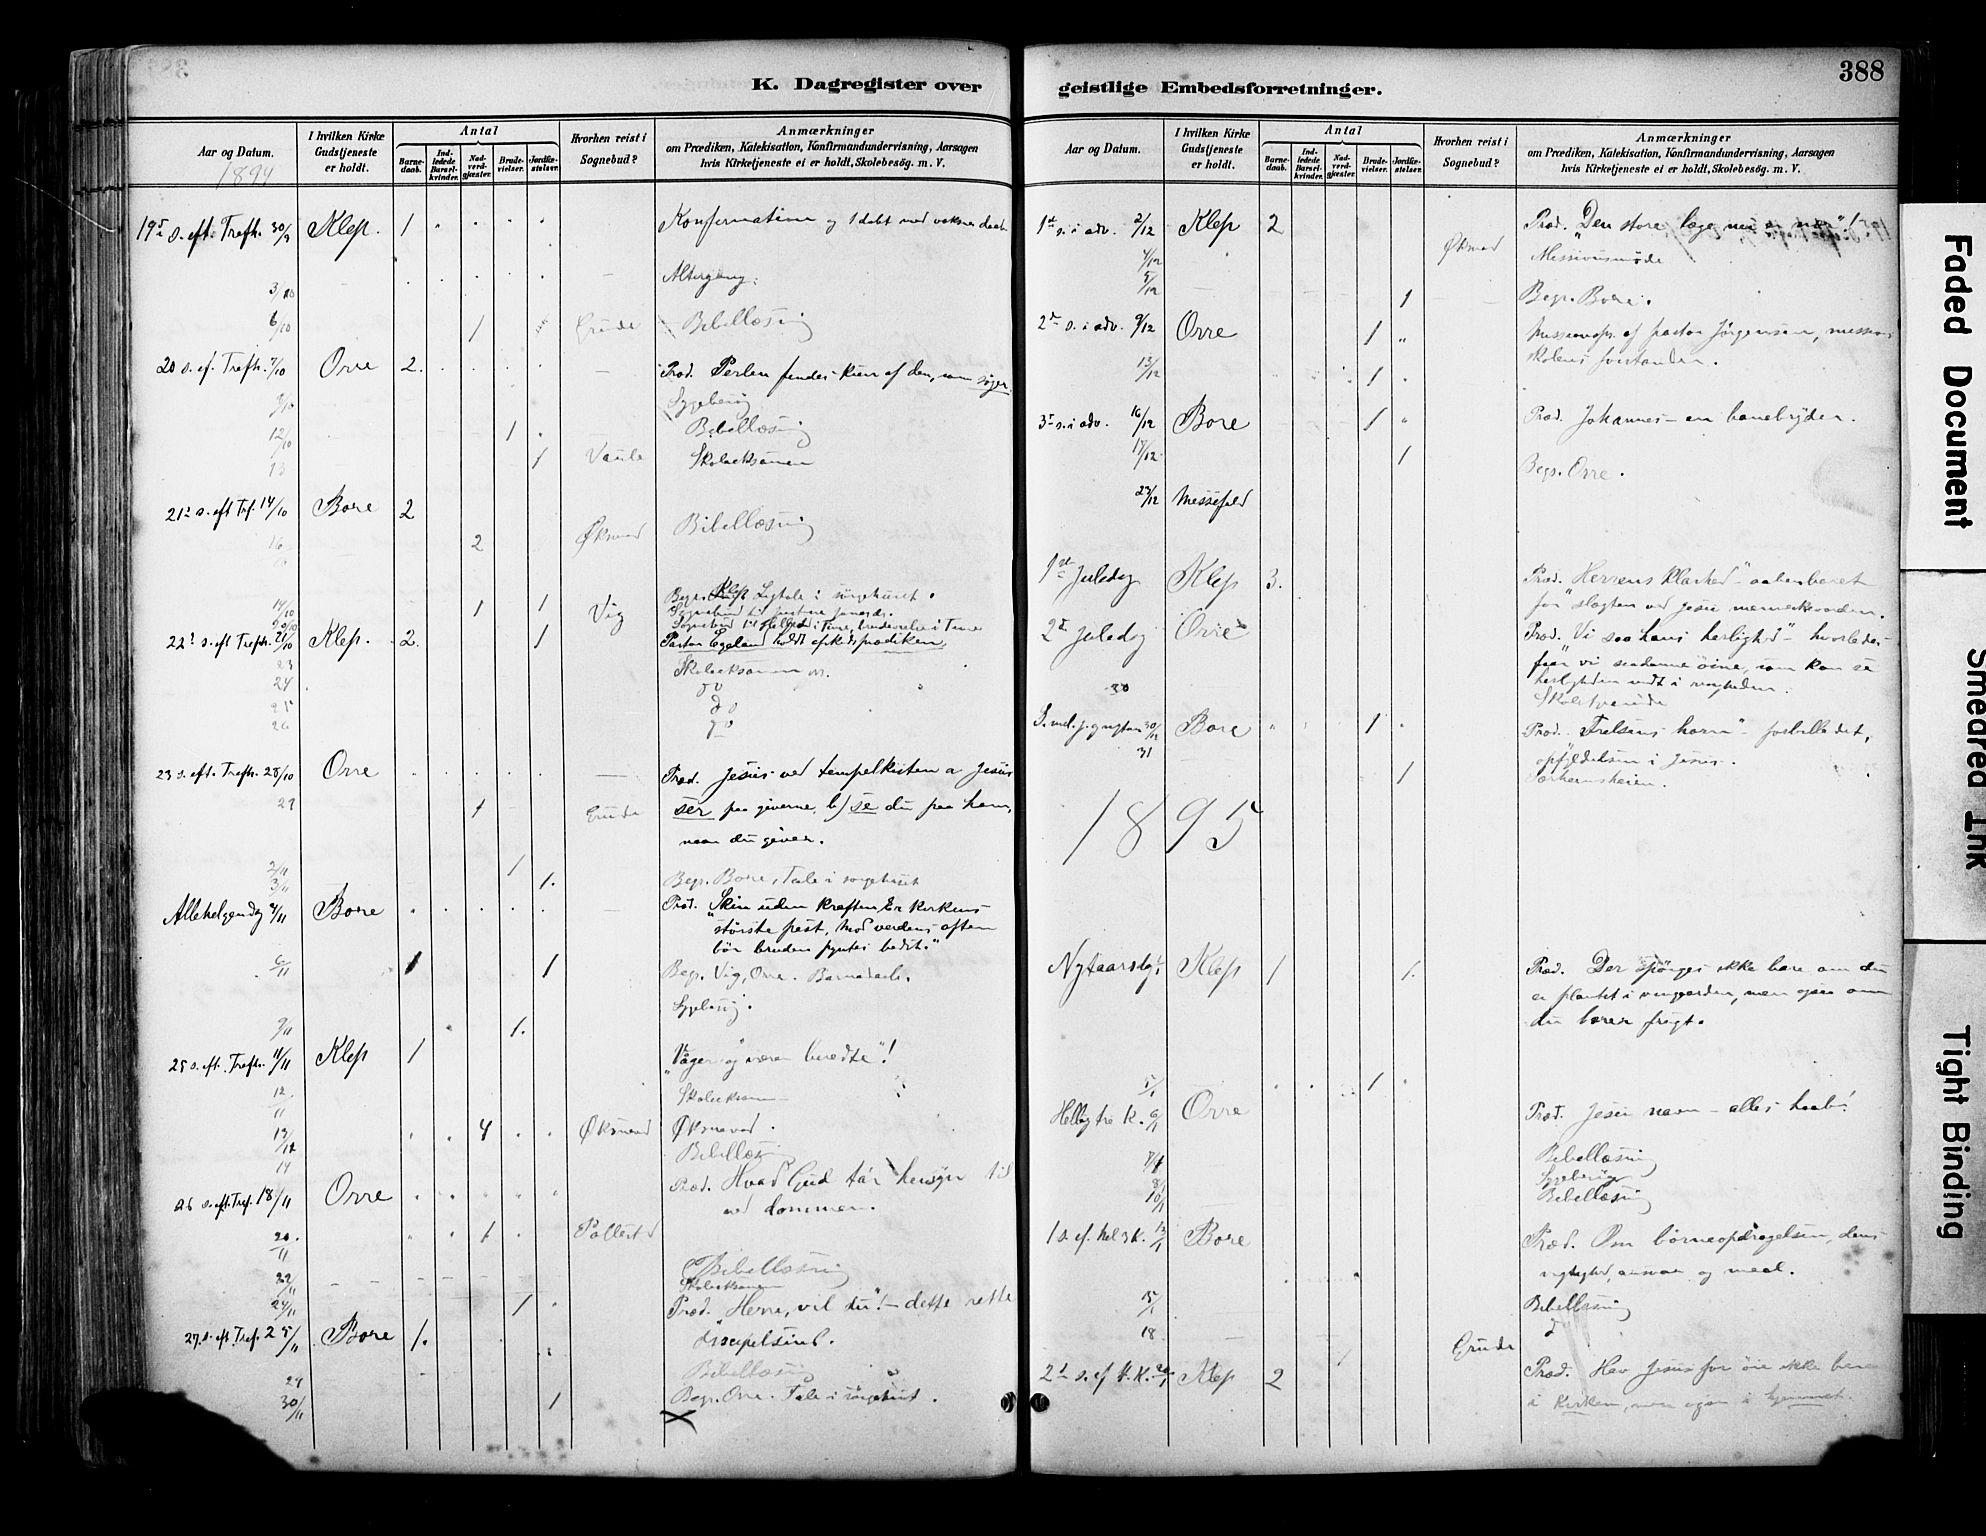 K. Dagregister over
Aar og Datum.
1894
I hvilken Kirke Gudstjeneste er holdt.
Antal
Barnedaab.
Indledede Barselkvinder.
Nadverdgjæster.
Brudevielser.
Jordfæstelser.
Hvorhen reist i Sognebud?
Anmærkninger
om Prædiken, Katekisation, Konfirmandundervisning, Aarsagen
hvis Kirketjeneste ei er holdt, Skolebesög. m. V.
19 s. eft. Trefh. 30/9 Klep. 1 Konfirmation og 1 dabt
3/10 Altergang.
6/10 1 Grude Bibellæsning
20 s. ef. Trefh. 7/10 Orre 2. Præd. Perlen findes kun af den, som søger.
9/10 Sygebesög
12/10 1 Bibellæsning
13 1 Vaule Skoleeksamen
21 s. eft Tref. 14/10 Bore 2
16 2 Øksnevad Bibellæsning
19/10 1 1 Vig Begr. Klep Ligtale i sörgehuset.
22 s. eft Trefh. 21/10 Klep. 2. 1 Pastor Egeland holdt afskedsprædiken.
23 Skoleeksamen
24 do
25 do
26 do
23 s. eft. Trefh. 28/10 Orre Præd. Jesus ved tempelkisten a Jesus
29 1 Grude ser paa giverne, b) se du paa ham,
naar du giver.
2/11 1
3/11 1. Begr. Bore, Tale i sorgehuset
Allehelgendag 4/11 Bore Præd. Skin uden kraften Er kirkens
største fest, Mod verdens aften
bör bruden pyntes bedst."
6/11 1 1 Begr. Vig, Orre. Barnedaab.
Sygebesög.
9/11 1.
25 s. eft. Trefh. 11/11 Klep 1 "Våger og værer beredte"!
12/11 Skoleeksamen
13/11 4 Øksnevad Øksnevad.
14 Bibellæsning
26 s. eft. Tref. 18/11 Orre Præd. Hvad Gud tar hensyn til
ved dommen.
20/11 1 Pollestad
Bibellæsning
22/11 Skoleeksamen
24/11 1 Præd. Herre, vil du"! - dette rette
27. s. eft Tref. 25/11 Bore 1. discipelsind.
29 Bibellæsning
30/11 1 Begr. Orre. Tale i sörgehuset.
X
geistlige Embedsforretninger.
388
Aar og Datum.
I hvilken Kirke Gudstjeneste er holdt.
Antal
Barnedaab.
Indledede Barselkvinder.
Nadverdgjæster.
Brudevielser.
Jordfæstelser.
Hvorhen reist i Sognebud?
Anmærkninger
om Prædiken, Katekisation, Konfirmandundervisning, Aarsagen
hvis Kirketjeneste ei er holdt, Skolebesög. m. V.
1st s. i adv. 2/12 Klep 2 Præd. "Den store læge nu er nær"!
4/12 Øksnevad Missionsmøde
5/12 1 Begr. Bore.
2 s. i adv. 9/12 Orre 1 af pastor Jörgensen, missions
skolens forstander.
13/12 1
3 s. i adv. 16/12 Bore 1 Præd. Johannes - en banebryder.
17/12 1 Begr. Orre.
23/12 Messefald
1st Juledag Klep 3. Præd. "Herrens klarhed" - aabenbaret
for slægten ved Jesu
2 Juledag Orre Præd. "Vi saa hans herlighed" - hvorledes
faar vi saadanne öine, som kan se
herligheden midt i ringheden.
30
S. mel. j. og nytaar 30/12 Bore 1 Præd. "Frelsens horn" - forbilledet,
31 opfyldelsen i Jesus.
1
1895
Nytaarsdag 1/1 Klep 1 1. Præd. Der spörges ikke bare om du
er plantet i vingaarden, men ogsaa om
du bærer frugt.
5/1 1
Hellig tre K. 6/1 Orre Præd. Jesu navn - alles haab!
7/1 Bibellæsning
8/1 Sygebesög
10/1 Bibellæsning
1 s. ef. hel 3 K. 13/1 Bore Præd. Om börneopdragelsen, dens
vigtighed, ansvar og maal.
15/1 Bibellæsning
18. Grude
2 s. ef H. K. 20/1 Klep 2 Præd. Hav Jesus for öie ikke bare
i kirken, men ogsaa i hjemmet.
Faded Document
Smeared Ink
Tight Binding